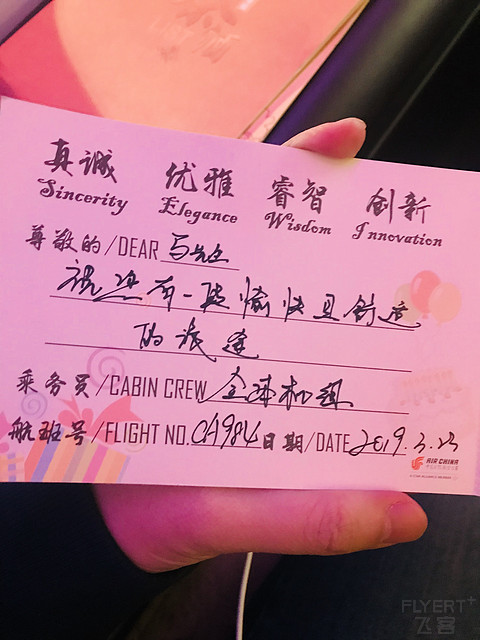 真诚 优雅 睿智 创新
Sincerity Elegance Wisdom Innovation
尊敬的/DEAR 马先生
祝您有一段愉快且舒适
的旅途
乘务员/CABIN CREW 全体机组
航班号/FLIGHT NO. CA984 日期/DATE 2019.3.23
AIR CHINA
FLYERT+
飞客